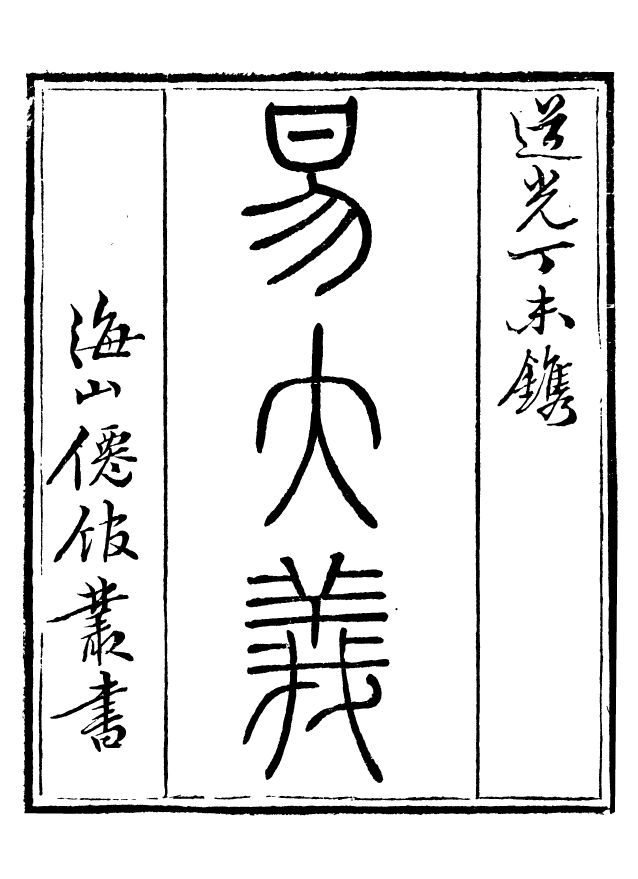 道光丁未鐫
易大義
海山僊館叢書